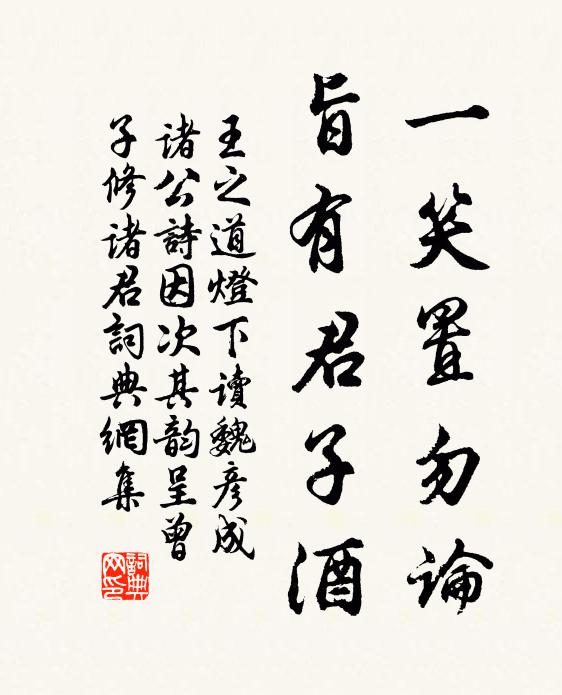 一笑置勿論
旨有君子酒
王之道燈下讀魏彥成
諸公詩因次其韵呈曾
子修諸君詞典網集
詞典
网印